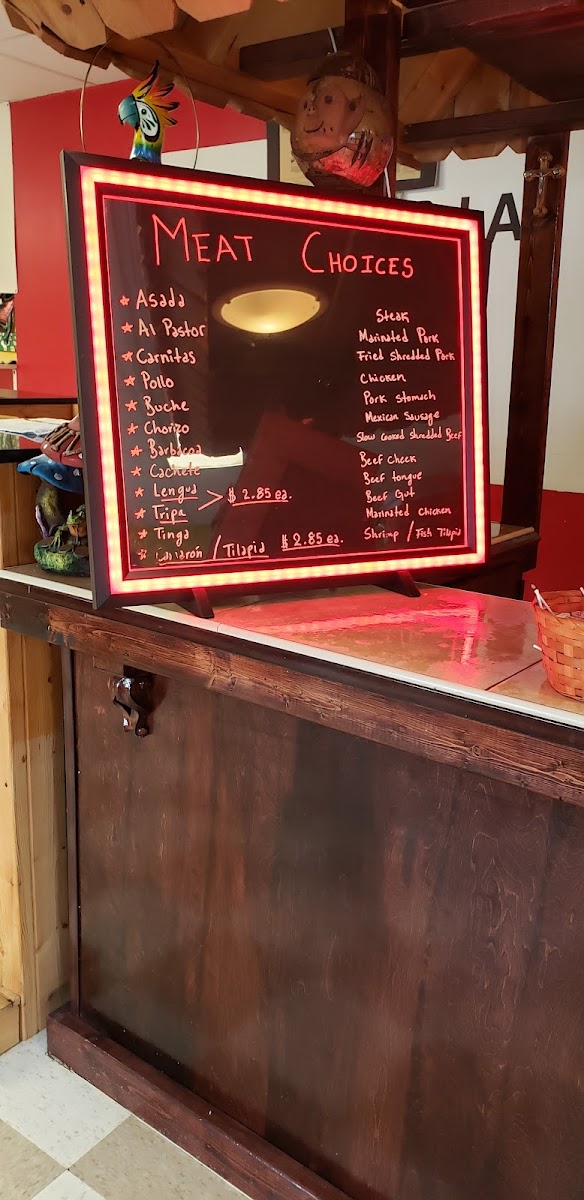 MEAT CHOICES
Asada Steak
Al Pastor Marinated Pork
Carnitas Fried Shredded Pork
Pollo Chicken
Buche Pork stomach
Chorizo Mexican Sausage
Barbacoa Slow Cooked Shredded Beef
Cachete Beef Cheek
Lengua Beef tongue
> $2.85 ea.
Tripa Beef Gut
Tinga Marinated Chicken
Camarón / Tilapia $2.85 ea. Shrimp / Fish Tilapia